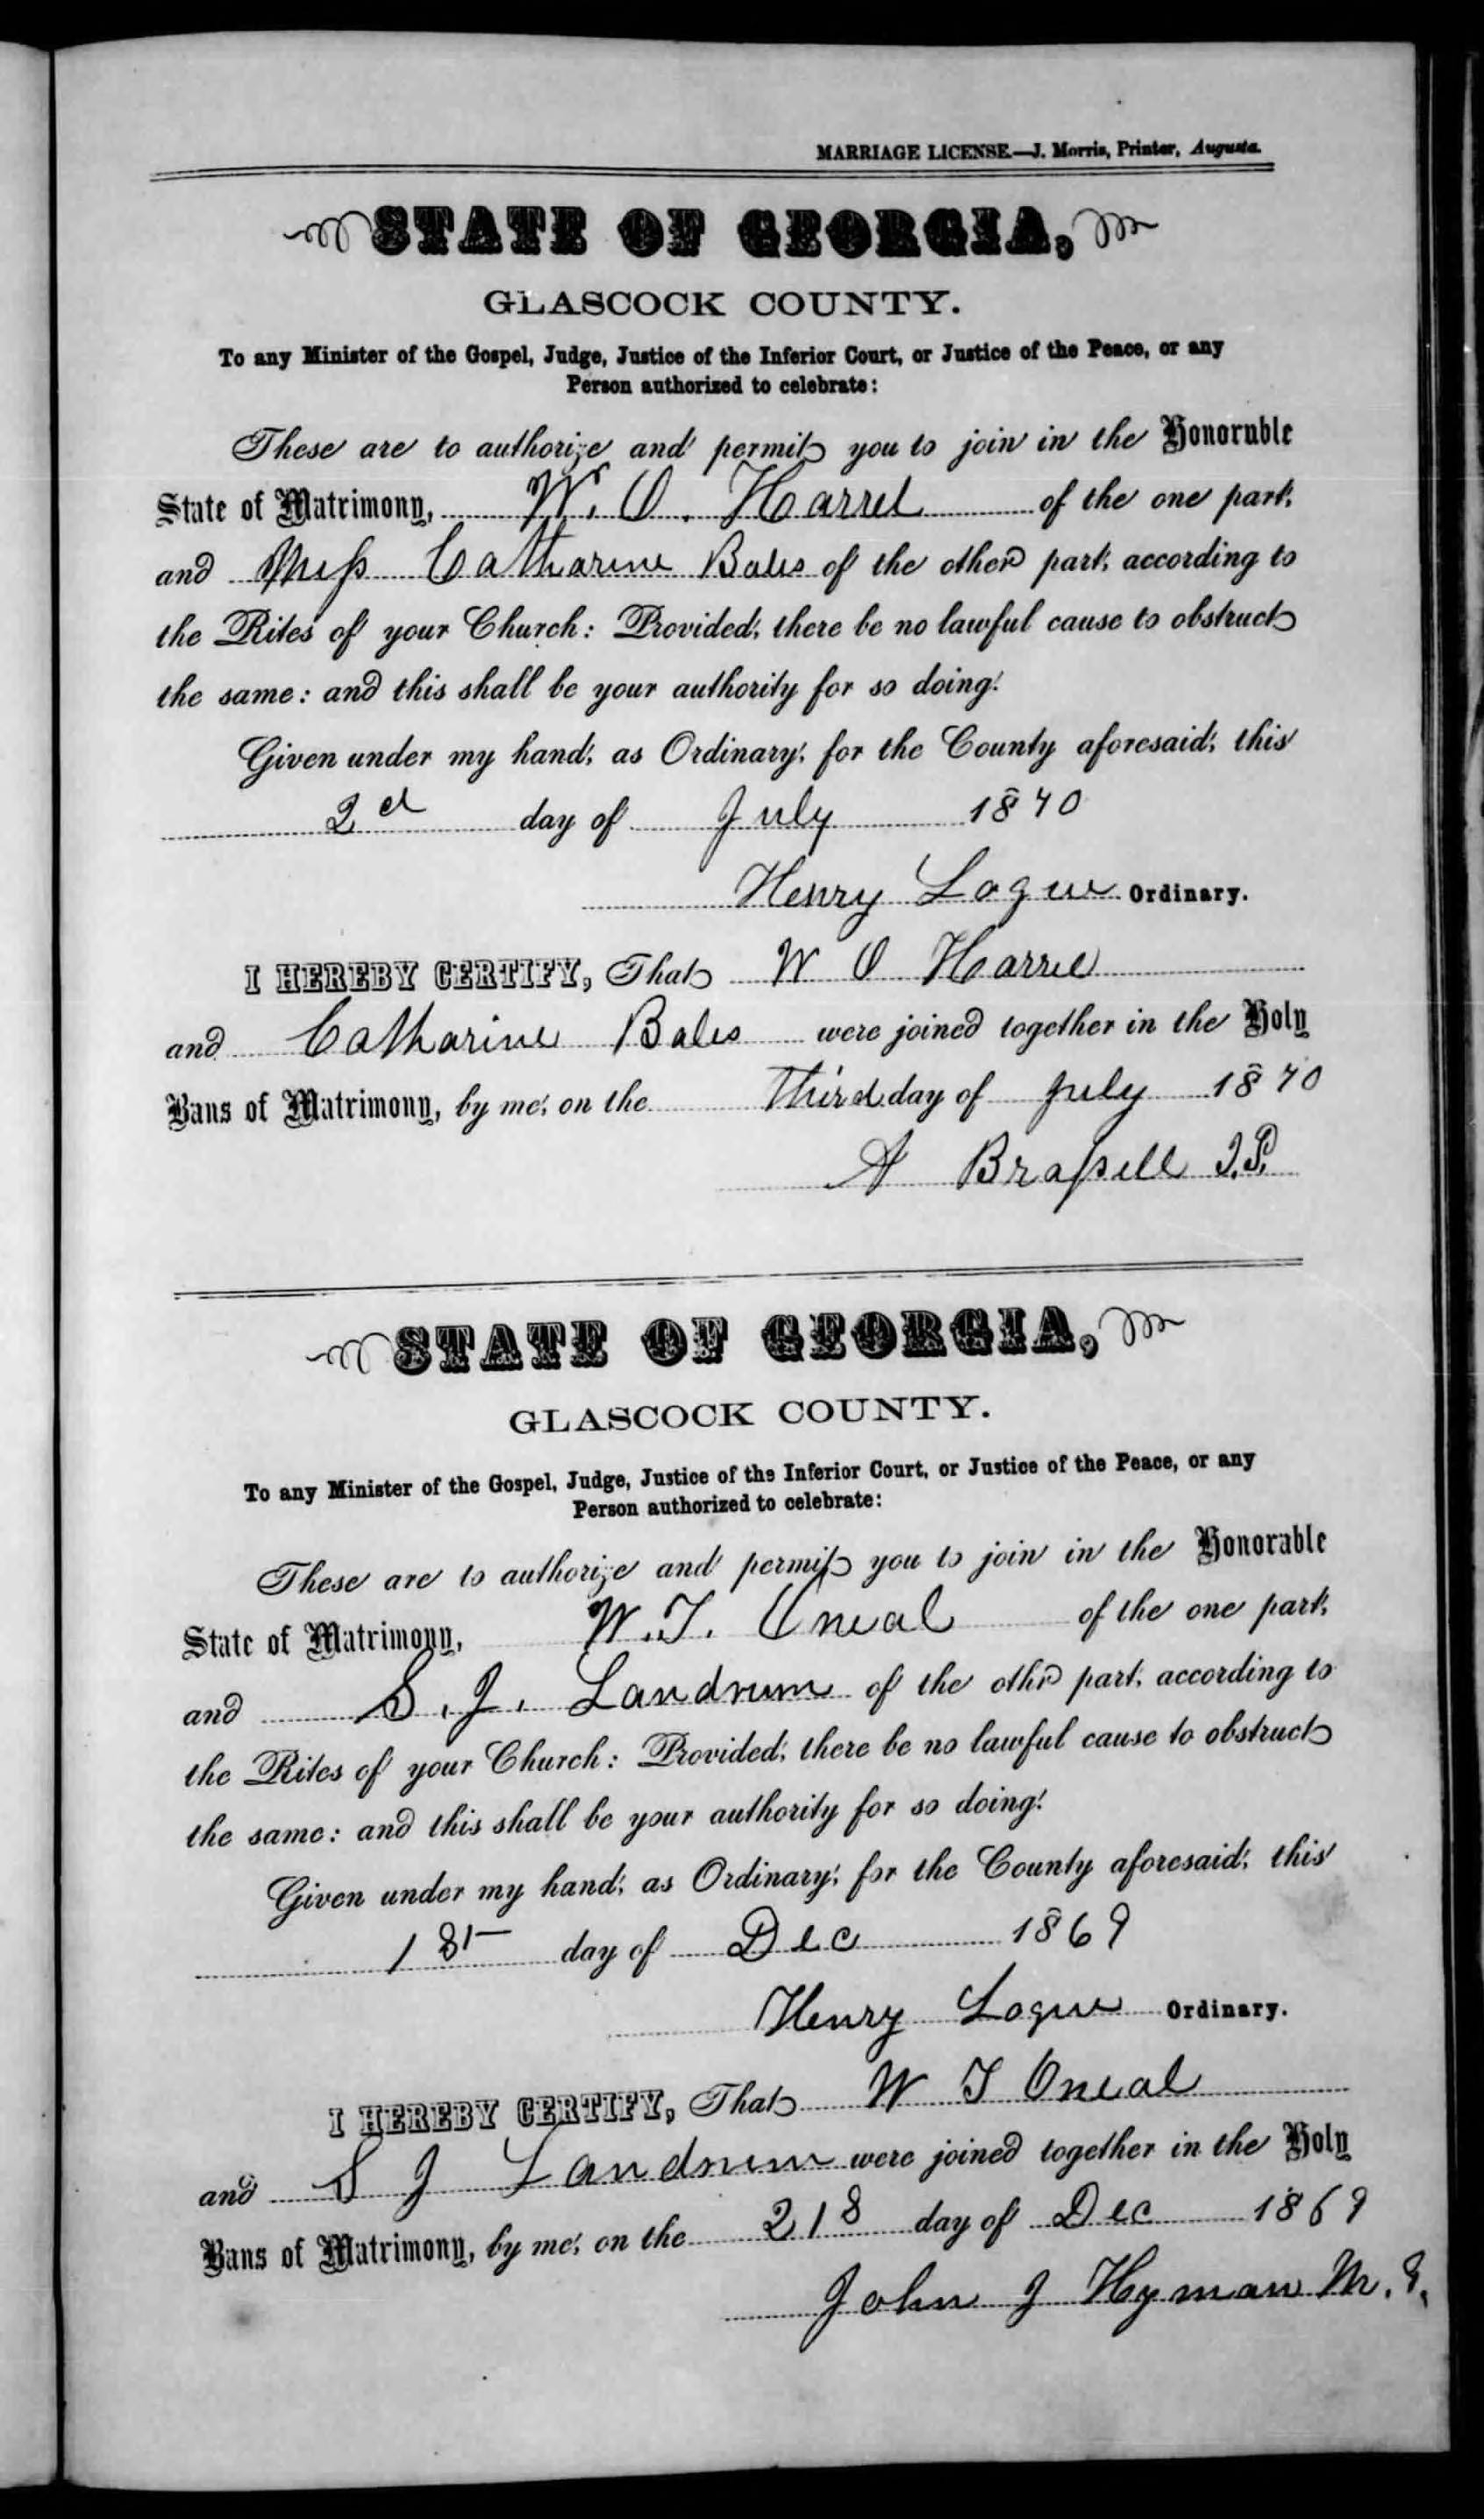 MARRIAGE LICENSE—J. Morris, Printer, Augusta.
STATE OF GEORGIA,
GLASCOCK COUNTY.
To any Minister of the Gospel, Judge, Justice of the Inferior Court, or Justice of the Peace, or any
Person authorized to celebrate:
These are to authorize and permit you to join in the Honorable
State of Matrimony, W. O. Harrel of the one part,
and Miss Catharine Bales of the other part, according to
the Rites of your Church: Provided, there be no lawful cause to obstruct
the same: and this shall be your authority for so doing.
Given under my hand, as Ordinary, for the County aforesaid, this
2d day of July 1870
Henry Logue Ordinary.
I HEREBY CERTIFY, That W O Harrel
and Catharine Bales were joined together in the Holy
Bans of Matrimony, by me, on the Third day of July 1870
A Brassell J.P.
STATE OF GEORGIA,
GLASCOCK COUNTY.
To any Minister of the Gospel, Judge, Justice of the Inferior Court, or Justice of the Peace, or any
Person authorized to celebrate:
These are to authorize and permit you to join in the Honorable
State of Matrimony, W. T. Oneal of the one part,
and S. J. Landrum of the othr part, according to
the Rites of your Church: Provided, there be no lawful cause to obstruct
the same: and this shall be your authority for so doing.
Given under my hand, as Ordinary, for the County aforesaid, this
day of Dec 1869
Henry Logue Ordinary.
I HEREBY CERTIFY, That W T Oneal
and S J Landrum were joined together in the Holy
Bans of Matrimony, by me, on the 21s day of Dec 1869
John J Hyman M. G.